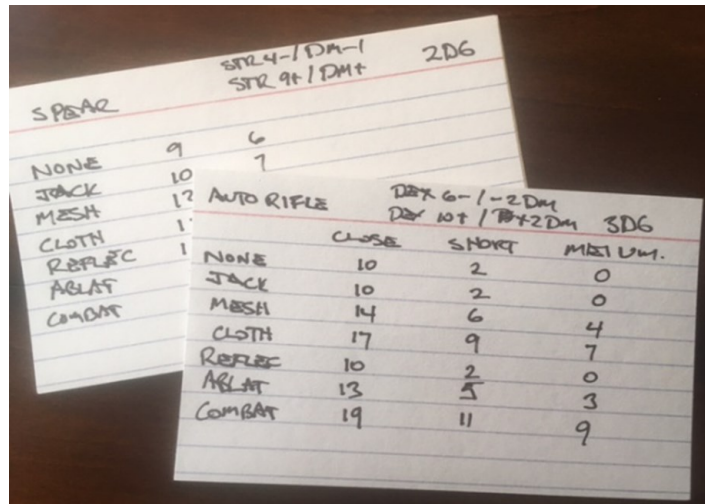 STR 4-/DM-1 2D6
STR 9+/DM+
SPEAR
NONE 9 6
JACK 10 7
MESH 12
CLOTH
REFLEC
ABLAT
COMBAT
AUTO RIFLE DEX 6-/-2 DM
DEX 10+/+2 DM 3D6
CLOSE SHORT MEDIUM.
NONE 10 2 0
JACK 10 2 0
MESH 14 6 4
CLOTH 17 9 7
REFLEC 10 2 0
ABLAT 13 5 3
COMBAT 19 11 9